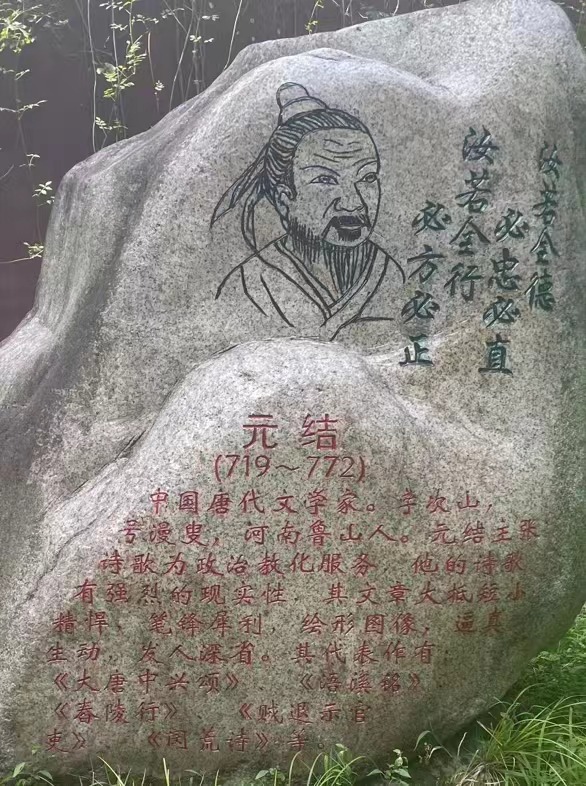 汝若全德
必忠必直
汝若全行
必方必正
元结
(719～772)
中国唐代文学家。字次山，
号漫叟，河南鲁山人。元结主张
诗歌为政治教化服务，他的诗歌
有强烈的现实性，其文章大抵短小
精悍，笔锋犀利，绘形图像，逼真
生动，发人深省。其代表作有
《大唐中兴颂》、《浯溪铭》、
《舂陵行》、《贼退示官
吏》、《闵荒诗》等。